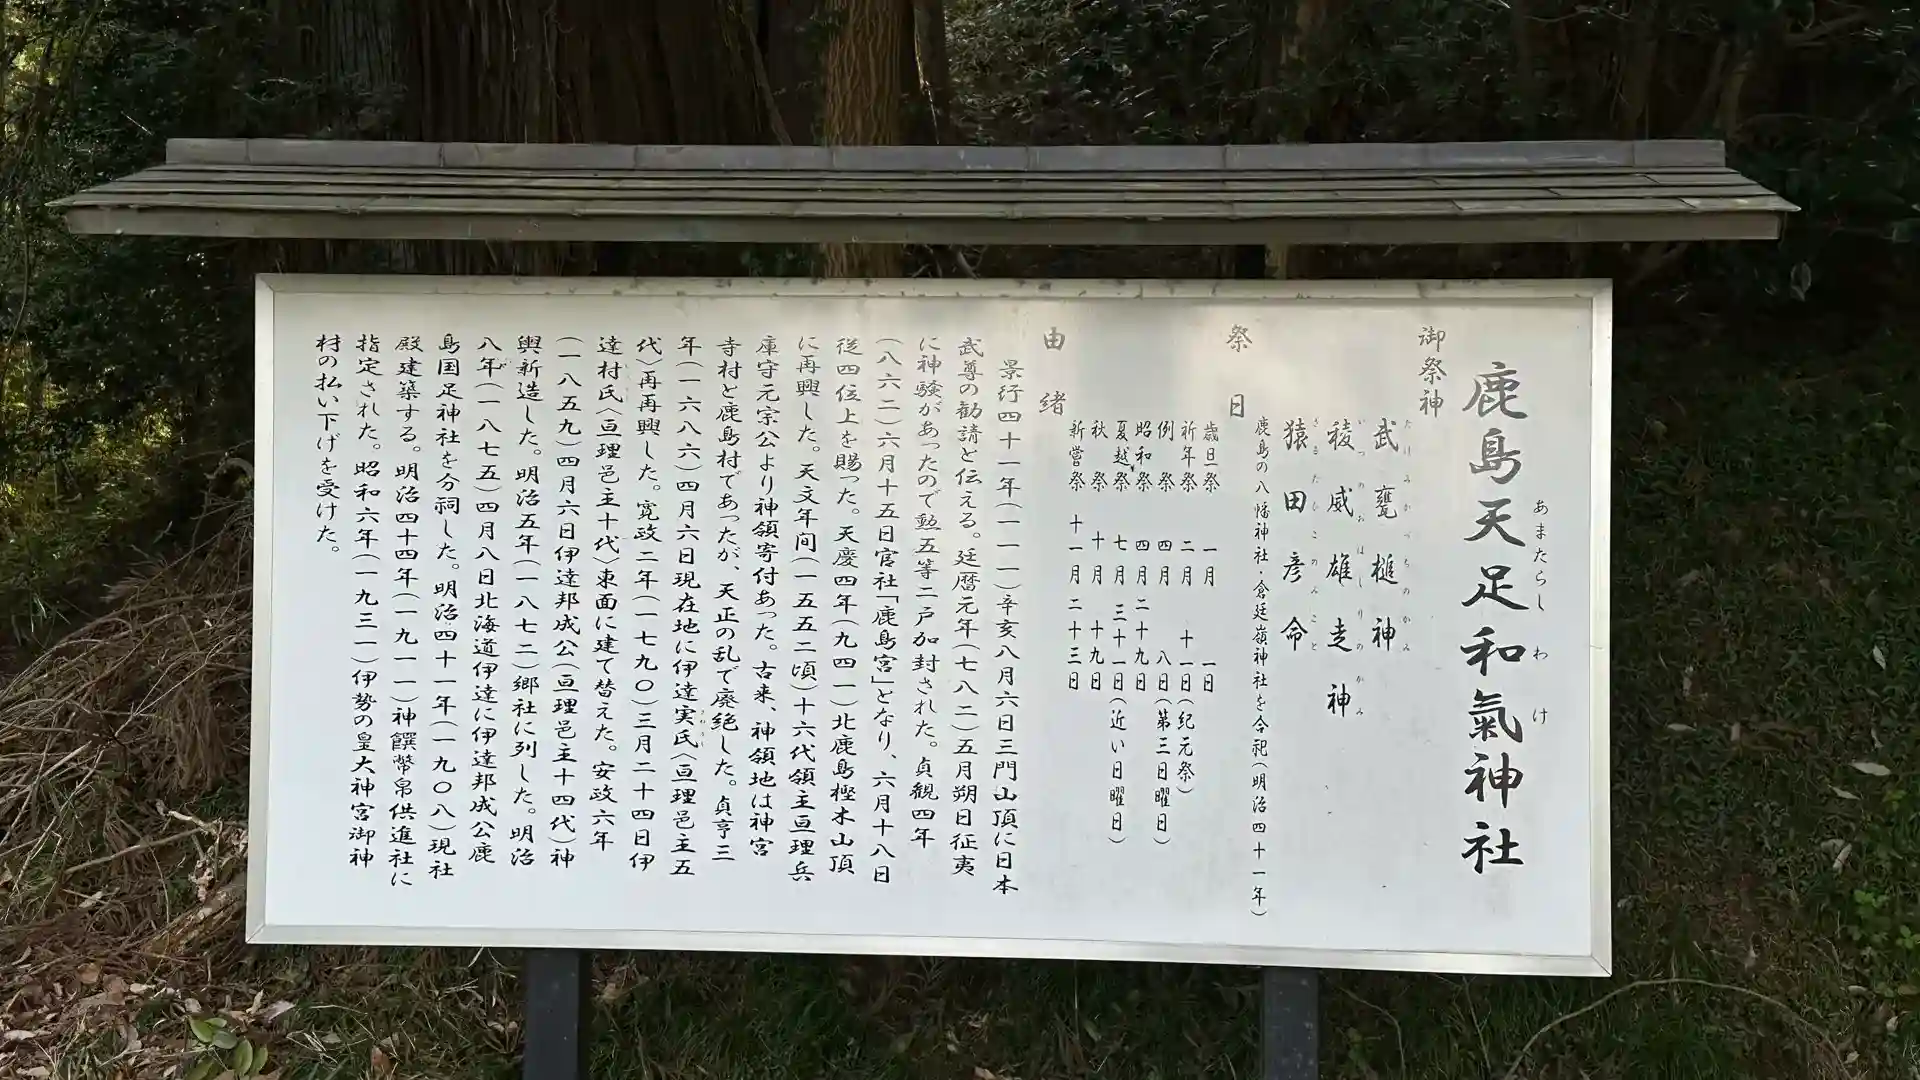 鹿島天足和氣神社
あまたらし わけ
御祭神
武甕槌神
たけみかづちのかみ
稜威雄走神
いつのおはしりのかみ
猿田彦命
さるたひこのみこと
鹿島の八幡神社・倉廷嶺神社を合祀(明治四十一年)
祭日
歳旦祭 一月 一日
祈年祭 二月 十一日(紀元祭)
例祭 四月 八日(第三日曜日)
昭和祭 四月二十九日
夏越祭 七月三十一日(近い日曜日)
秋祭 十月十九日
新嘗祭 十一月二十三日
由緒
景行四十一年(一一一)辛亥八月六日三門山頂に日本
武尊の勧請と伝える。延暦元年(七八二)五月朔日征夷
に神験があったので勲五等二戸加封された。貞観四年
(八六二)六月十五日官社「鹿島宮」となり、六月十八日
従四位上を賜った。天慶四年(九四一)北鹿島樫木山頂
に再興した。天文年間(一五五二頃)十六代領主亘理兵
庫守元宗公より神領寄付あった。古来、神領地は神宮
寺村と鹿島村であったが、天正の乱で廃絶した。貞亨三
年(一六八六)四月六日現在地に伊達実氏〈亘理邑主五
代〉再再興した。寛政二年(一七九〇)三月二十四日伊
達村氏〈亘理邑主十代〉東面に建て替えた。安政六年
(一八五九)四月六日伊達邦成公(亘理邑主十四代)神
輿新造した。明治五年(一八七二)郷社に列した。明治
八年(一八七五)四月八日北海道伊達に伊達邦成公鹿
島国足神社を分祠した。明治四十一年(一九〇八)現社
殿建築する。明治四十四年(一九一一)神饌幣帛供進社に
指定された。昭和六年(一九三一)伊勢の皇大神宮御神
材の払い下げを受けた。